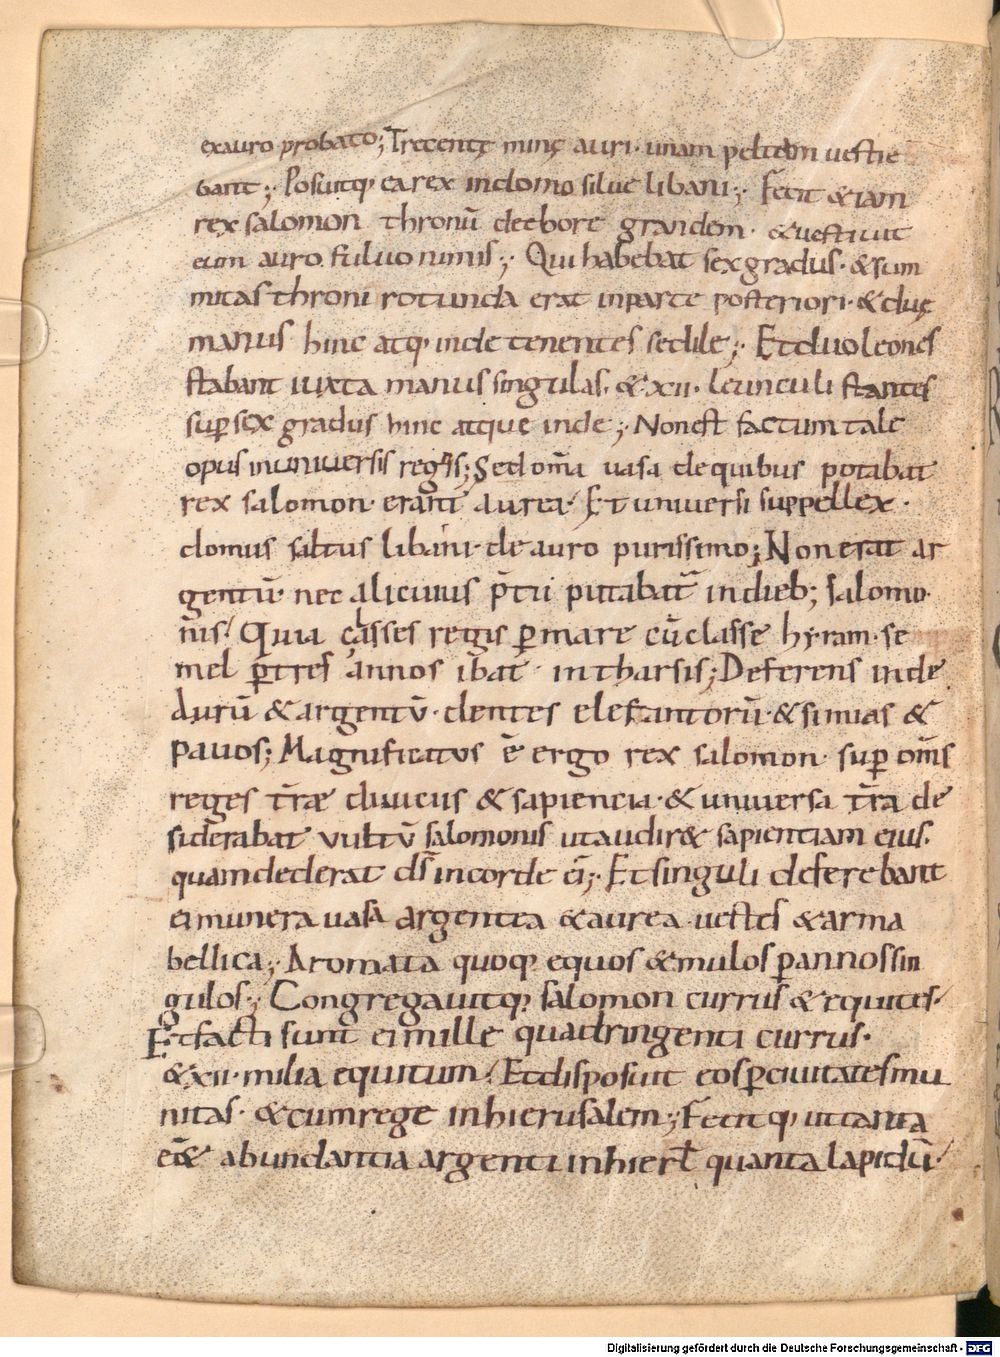 exauro probato; Trecentę minę auri· unam peltam uestie
bant;· Posuitq; ea rex indomo silue libani;· Fecit &iam
rex salomon thronū deebore grandem· &uestiuit
eum auro fuluo nimis;· Qui habebat sex gradus· &sum
mitas throni rotunda erat inparte posteriori· &duę
manus hinc atq; inde tenentes sedile;· Et duo leones
stabant iuxta manus singulas· &xii· leunculi stantes
sup sex gradus hinc atque inde;· Nonest factum tale
opus inuniuersis regnis; Sed om̄a uasa de quibus potabat
rex salomon· erant aurea· Et uniuersi suppellex·
domus saltus libani· de auro purissimo; Non erat ar
gentū· nec alicuius p̄tii putabat̄ indieb; salomo·
nis· Quia classes regis p mare cū classe hyram· se
mel p tres annos ibat· in tharsis; Deferens inde
aurū & argentū· dentes elefantorū· & simias &
pauos; Magnificatus ē ergo rex salomon· sup om̄s
reges t̄rae diuiciis & sapiencia· & uniuersa t̄ra de
siderabat uultū salomonis utaudir& sapientiam eius·
quam dederat d̄s incorde ei;· Et singuli deferebant
ei munera uasa argentea &aurea· uestes &arma
bellica;· Aromata quoq; equos &mulos p annos sin
gulos;· Congregauitq; salomon currus & equites·
Et facti sunt ei mille quadringenti currus·
&xii· milia equitum· Et disposuit eos p ciuitates mu
nitas· &cum rege inhierusalem;· Fecit q; ut tanta
ēe& abundantia argenti inhierl̄ quanta lapidū·
Digitalisierung gefördert durch die Deutsche Forschungsgemeinschaft - DFG